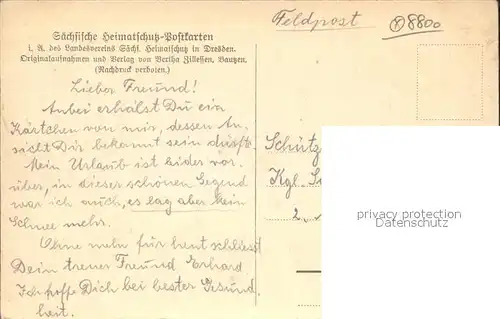 Feldpost
8800
Sächsische Heimatschutz-Postkarten
i. A. des Landesvereins Sächs. Heimatschutz in Dresden.
Originalaufnahmen und Verlag von Bertha Zillessen, Bautzen.
(Nachdruck verboten.)
Lieber Freund!
Anbei erhälst Du ein
Kärtchen von mir, dessen An-
sicht Dir bekannt sein dürfte.
Mein Urlaub ist leider vor-
über, in dieser schönen Gegend
war ich auch, es lag aber kein
Schnee mehr.
Ohne mehr für heut schliesst
Dein treuer Freund Erhard
Ich hoffe Dich bei bester Gesund
heit.
Schütz
Kgl.
2.
privacy protection
Datenschutz